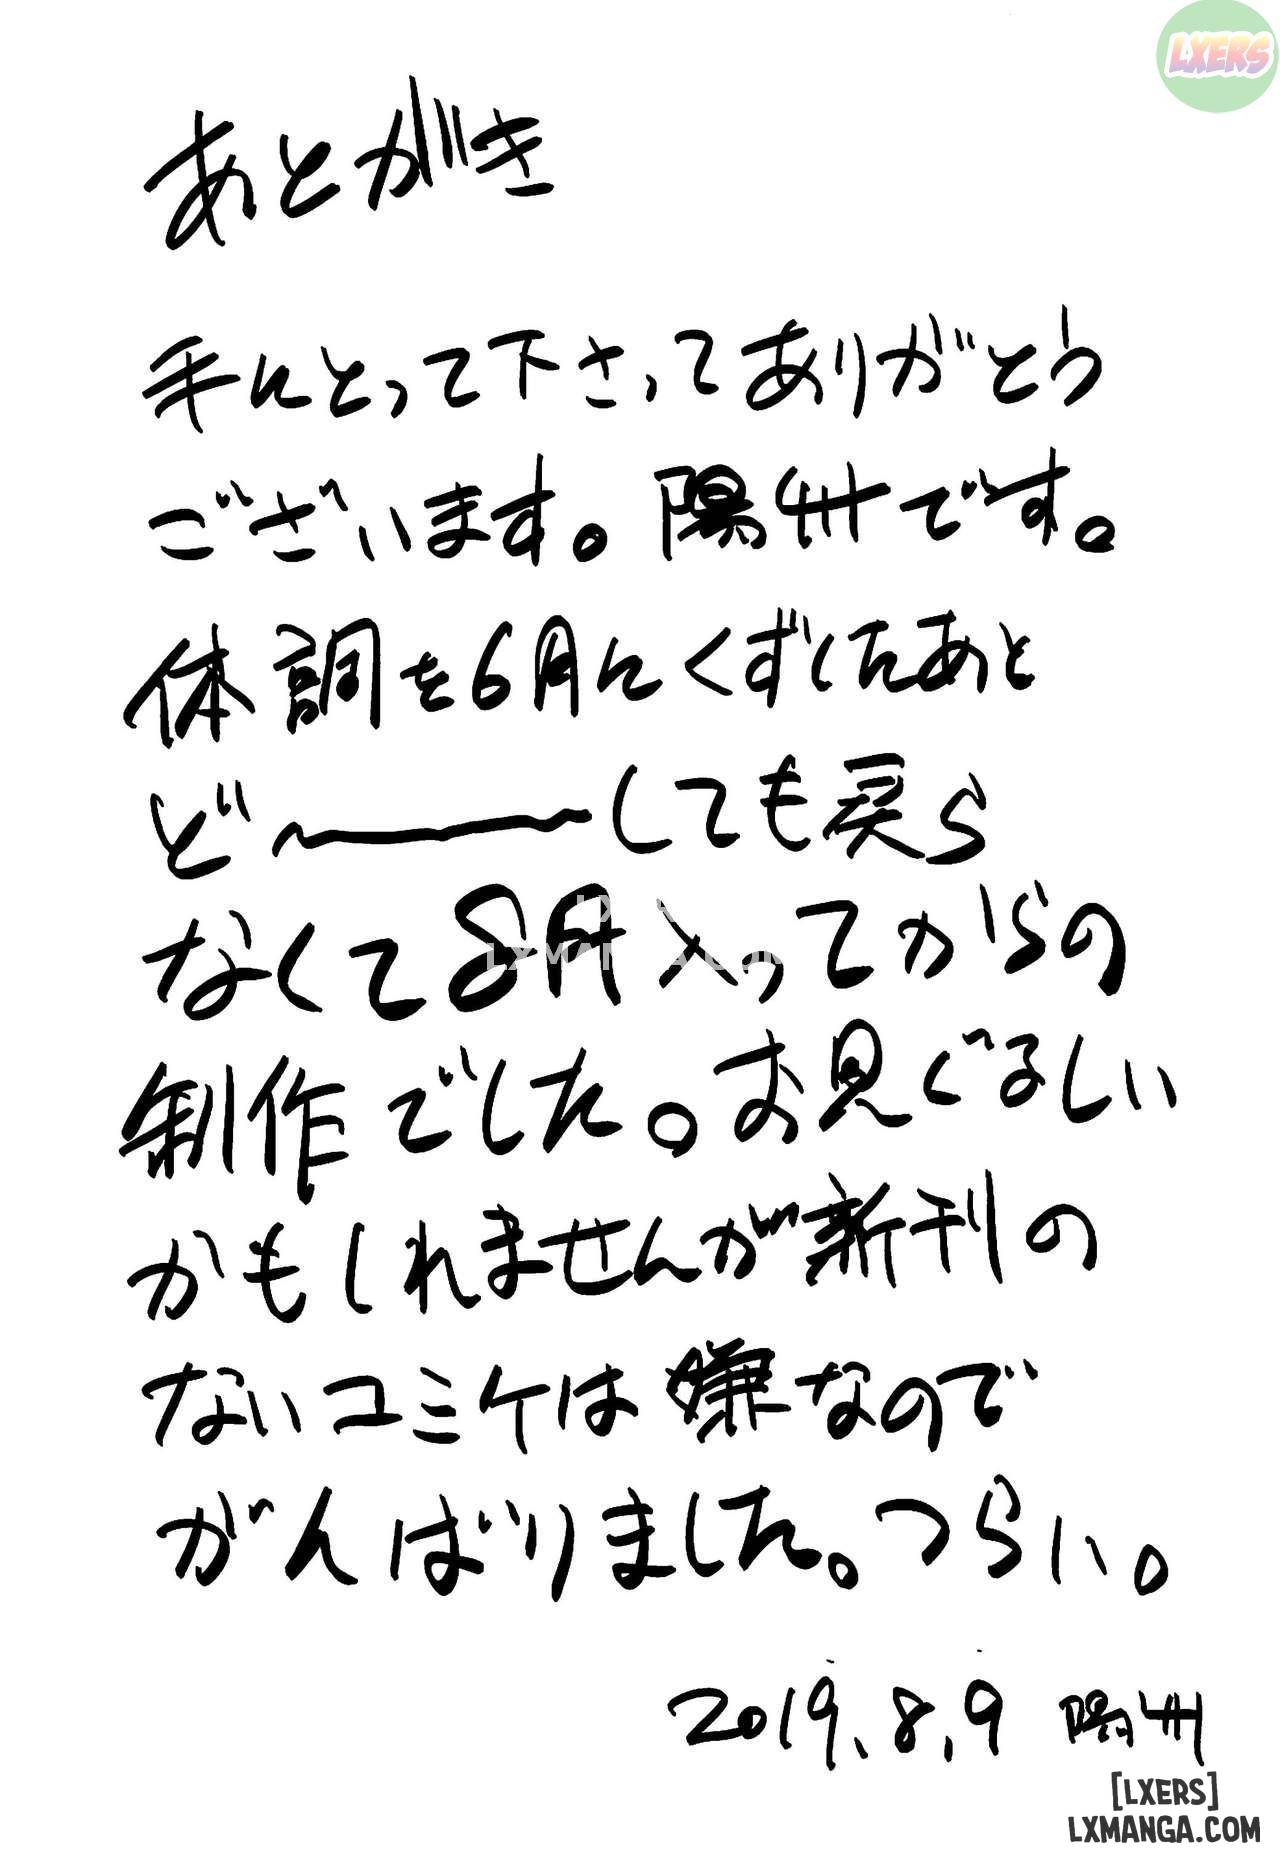 LXERS
あとがき
手にとって下さってありがとう
ございます。陽州です。
体調を6月にくずしたあと
ど〜しても戻ら
なくて8月入ってからの
制作でした。お見ぐるしい
かもしれませんが新刊の
ないコミケは嫌なので
がんばりました。つらい。
2019.8.9 陽州
[LXERS]
LXMANGA.COM